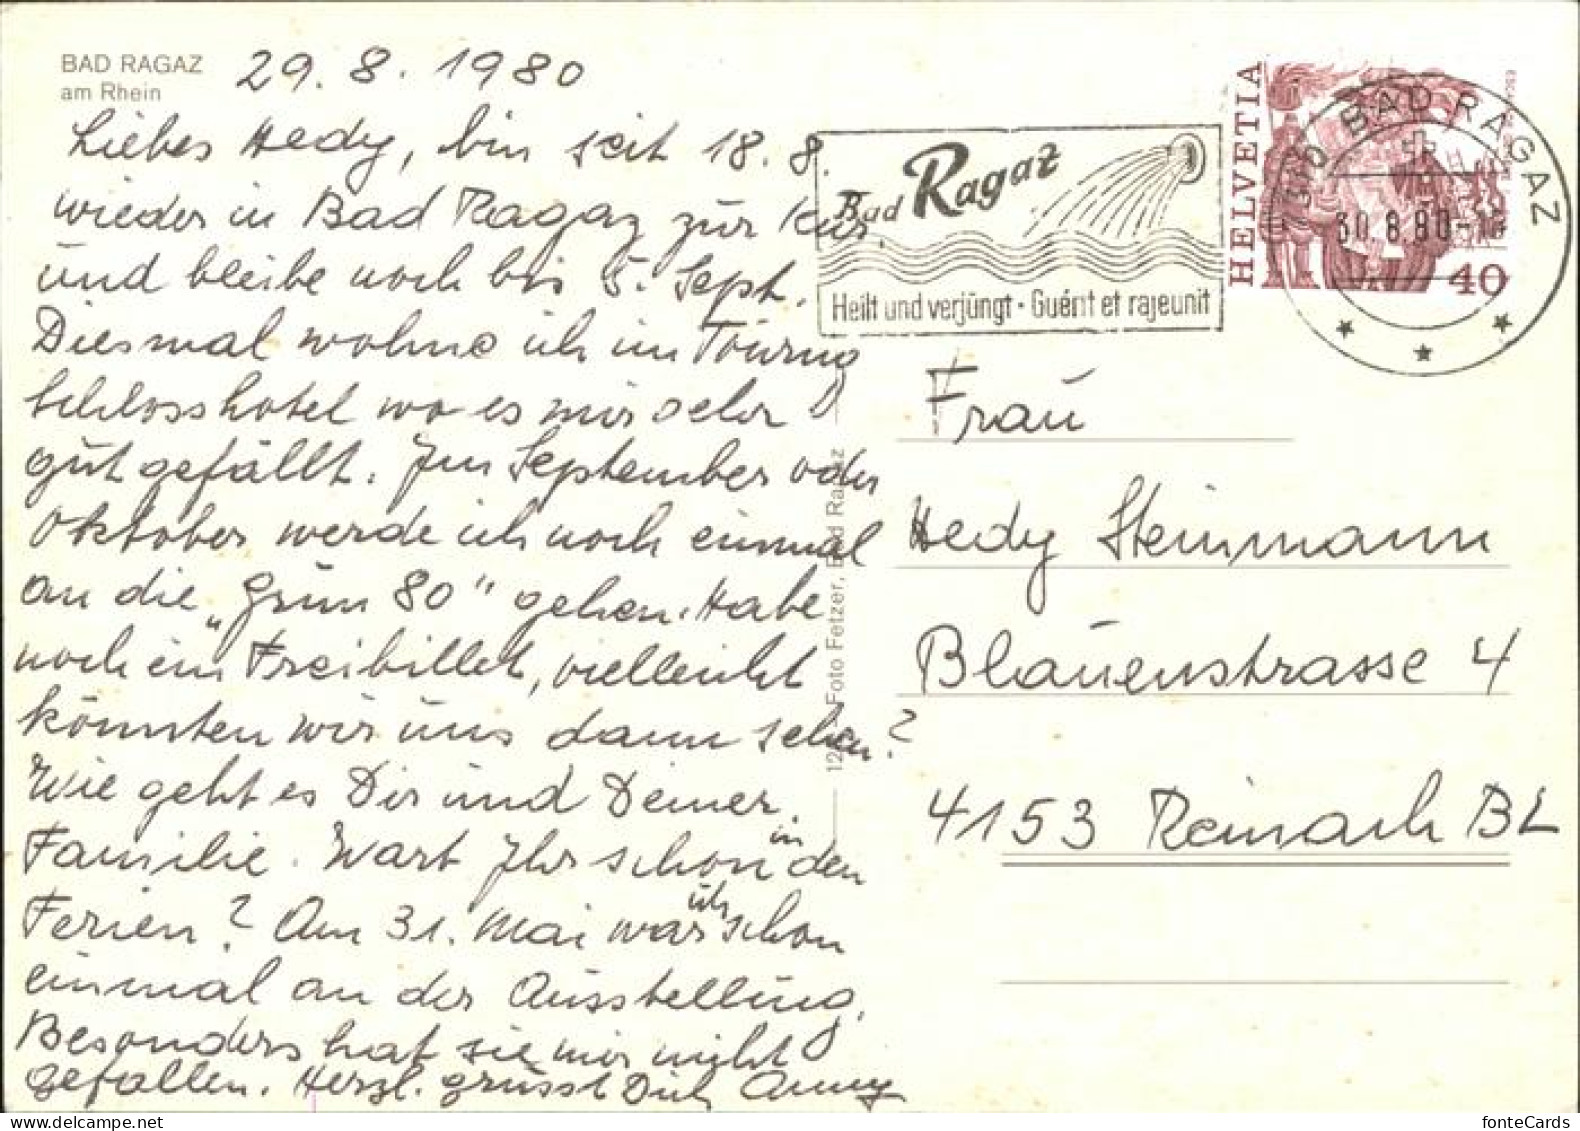 BAD RAGAZ
am Rhein
29. 8. 1980
Liebes Hedy, bin seit 18. 8.
wieder in Bad Ragaz zur Kur
und bleibe noch bis 5. Sept.
Diesmal wohne ich im
Schlosshotel wo es mir sehr
gut gefällt. Im September oder
Oktober werde ich noch einmal
an die „Grün 80" gehen. Habe
noch ein Freibillet, vielleicht
könnten wir uns dann sehen?
Wie geht es Dir und Deiner
Familie. Wart Ihr schon in den
Ferien? Am 31. Mai war ich schon
einmal an der Ausstellung.
Besonders hat sie mir nicht
gefallen. Herzl. grüsst Dich Anny
Foto Fetzer, Bad Ragaz
Bad Ragaz
Heilt und verjüngt · Guérit et rajeunit
HELVETIA
40
7310 BAD RAGAZ
30.8.80-18
Frau
Hedy Steinmann
Blauenstrasse 4
4153 Reinach BL
fonteCards